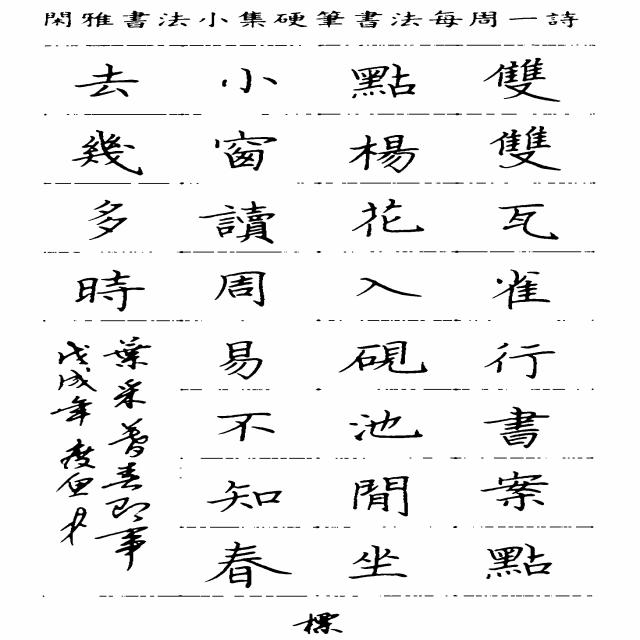 閑雅書法小集硬筆書法每周一詩
雙雙瓦雀行書案點
點楊花入硯池閒坐
小窗讀周易不知春
去幾多時
葉采暮春即事
戊戌年
標